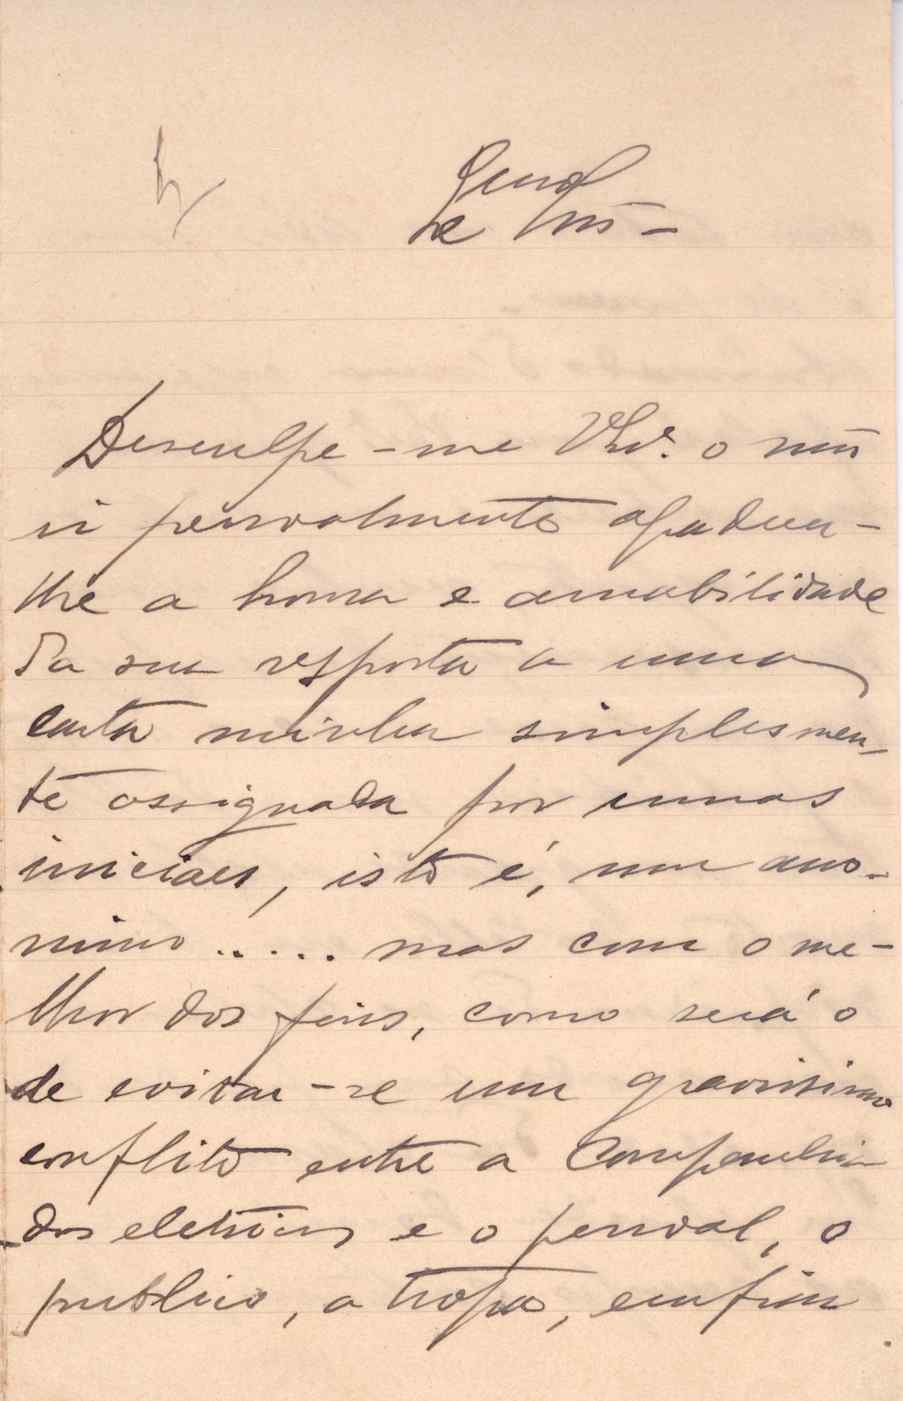 Desculpe-me V. Ex.ª o não
ir pessoalmente agradecer-
lhe a honra e amabilidade
da sua resposta a uma
carta minha simplesmen-
te assignada por umas
iniciaes, isto é, um ano-
nimo ..... mas com o me-
lhor dos fins, como será o
de evitar-se um gravissimo
conflito entre a Companhia
dos eletricos e o pessoal, o
publico, a tropa, emfim